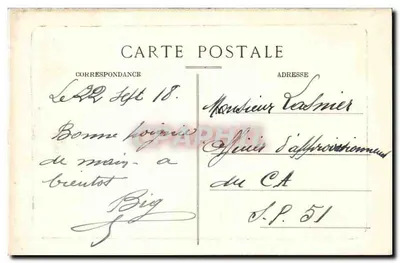 CARTE POSTALE
CORRESPONDANCE
ADRESSE
Le 22 Sept 18.
Bonne poignée
de main - a
bientot
Big
Monsieur Lasnier
Officier d'approvisionnement
du CA
S.P. 51